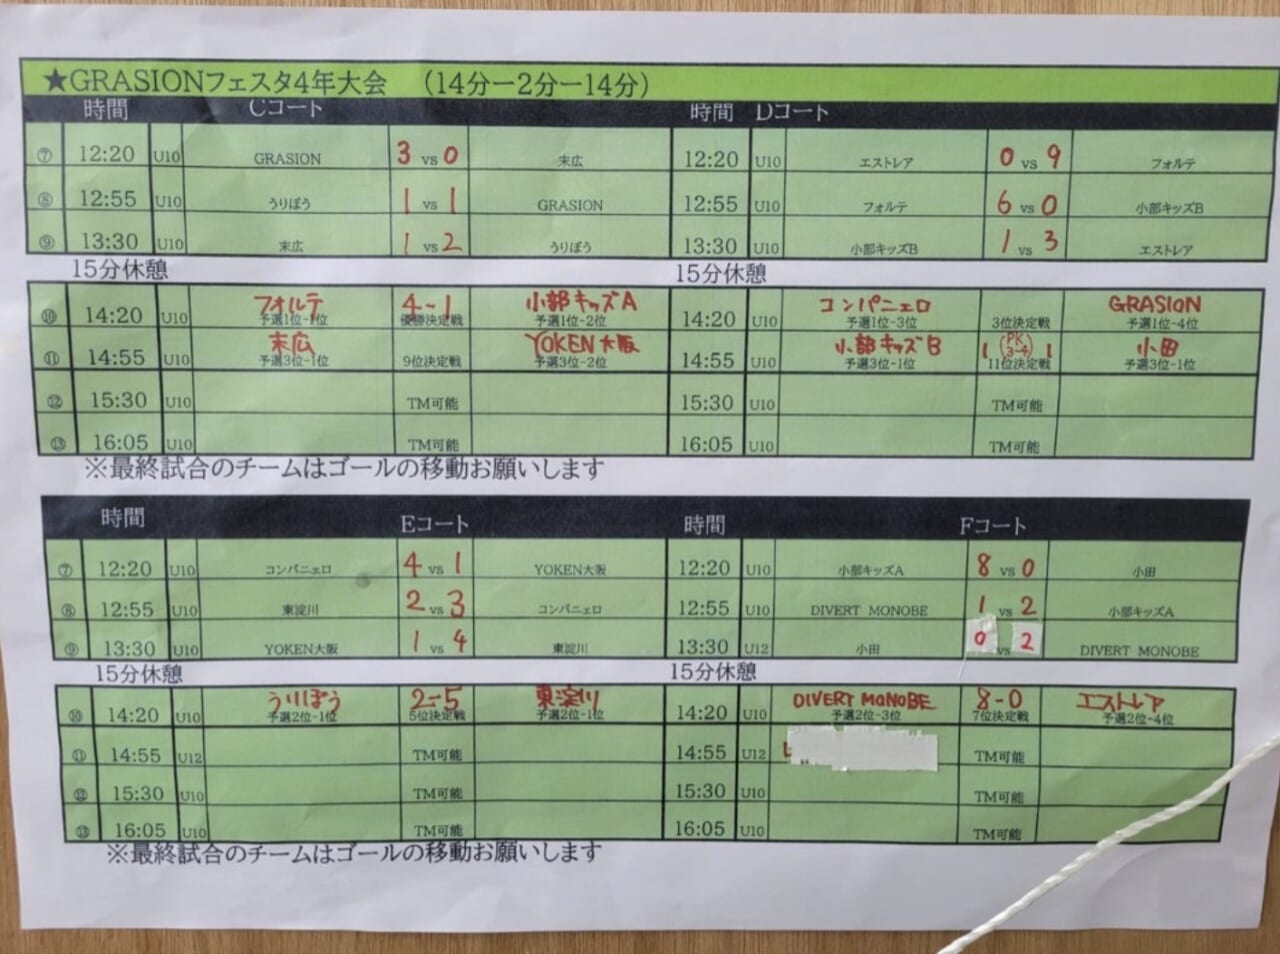 ★GRASIONフェスタ4年大会 （14分ー2分ー14分）
時間 Cコート 時間 Dコート
⑦ 12:20 U10 GRASION 3 vs 0 末広 12:20 U10 エストレア 0 vs 9 フォルテ
⑧ 12:55 U10 うりぼう 1 vs 1 GRASION 12:55 U10 フォルテ 6 vs 0 小部キッズB
⑨ 13:30 U10 末広 1 vs 2 うりぼう 13:30 U10 小部キッズB 1 vs 3 エストレア
15分休憩 15分休憩
⑩ 14:20 U10 フォルテ 4-1 小部キッズA 14:20 U10 コンパニェロ GRASION
予選1位-1位 優勝決定戦 予選1位-2位 予選1位-3位 3位決定戦 予選1位-4位
⑪ 14:55 U10 末広 YOKEN大阪 14:55 U10 小部キッズB 1 (PK 3-4) 1 小田
予選3位-1位 9位決定戦 予選3位-2位 予選3位-1位 11位決定戦 予選3位-1位
⑫ 15:30 U10 TM可能 15:30 U10 TM可能
⑬ 16:05 U10 TM可能 16:05 U10 TM可能
※最終試合のチームはゴールの移動お願いします
時間 Eコート 時間 Fコート
⑦ 12:20 U10 コンパニェロ 4 vs 1 YOKEN大阪 12:20 U10 小部キッズA 8 vs 0 小田
⑧ 12:55 U10 東淀川 2 vs 3 コンパニェロ 12:55 U10 DIVERT MONOBE 1 vs 2 小部キッズA
⑨ 13:30 U10 YOKEN大阪 1 vs 4 東淀川 13:30 U12 小田 0 vs 2 DIVERT MONOBE
15分休憩 15分休憩
⑩ 14:20 U10 うりぼう 2-5 東淀川 14:20 U10 DIVERT MONOBE 8-0 エストレア
予選2位-1位 5位決定戦 予選2位-1位 予選2位-3位 7位決定戦 予選2位-4位
⑪ 14:55 U12 TM可能 14:55 U12 TM可能
⑫ 15:30 U10 TM可能 15:30 U10 TM可能
⑬ 16:05 U10 TM可能 16:05 U10 TM可能
※最終試合のチームはゴールの移動お願いします